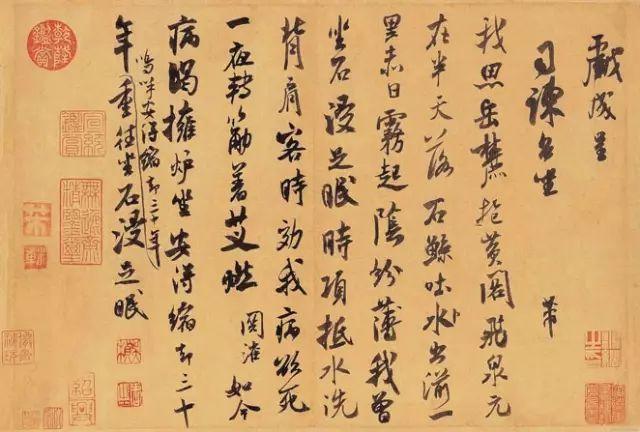 戲成呈
司諫台坐
芾
我思岳麓抱黄閣飛泉元
在半天落石鯨吐水出湔一
里赤日霧起陰紛薄我曾
坐石浸足眠時項抵水洗
背肩客時効我病欲死
一夜轉筋著艾燃 関灌 如今
病渴擁爐坐安得縮却三十
年重往坐石浸足眠
嗚呼安得縮却三十年